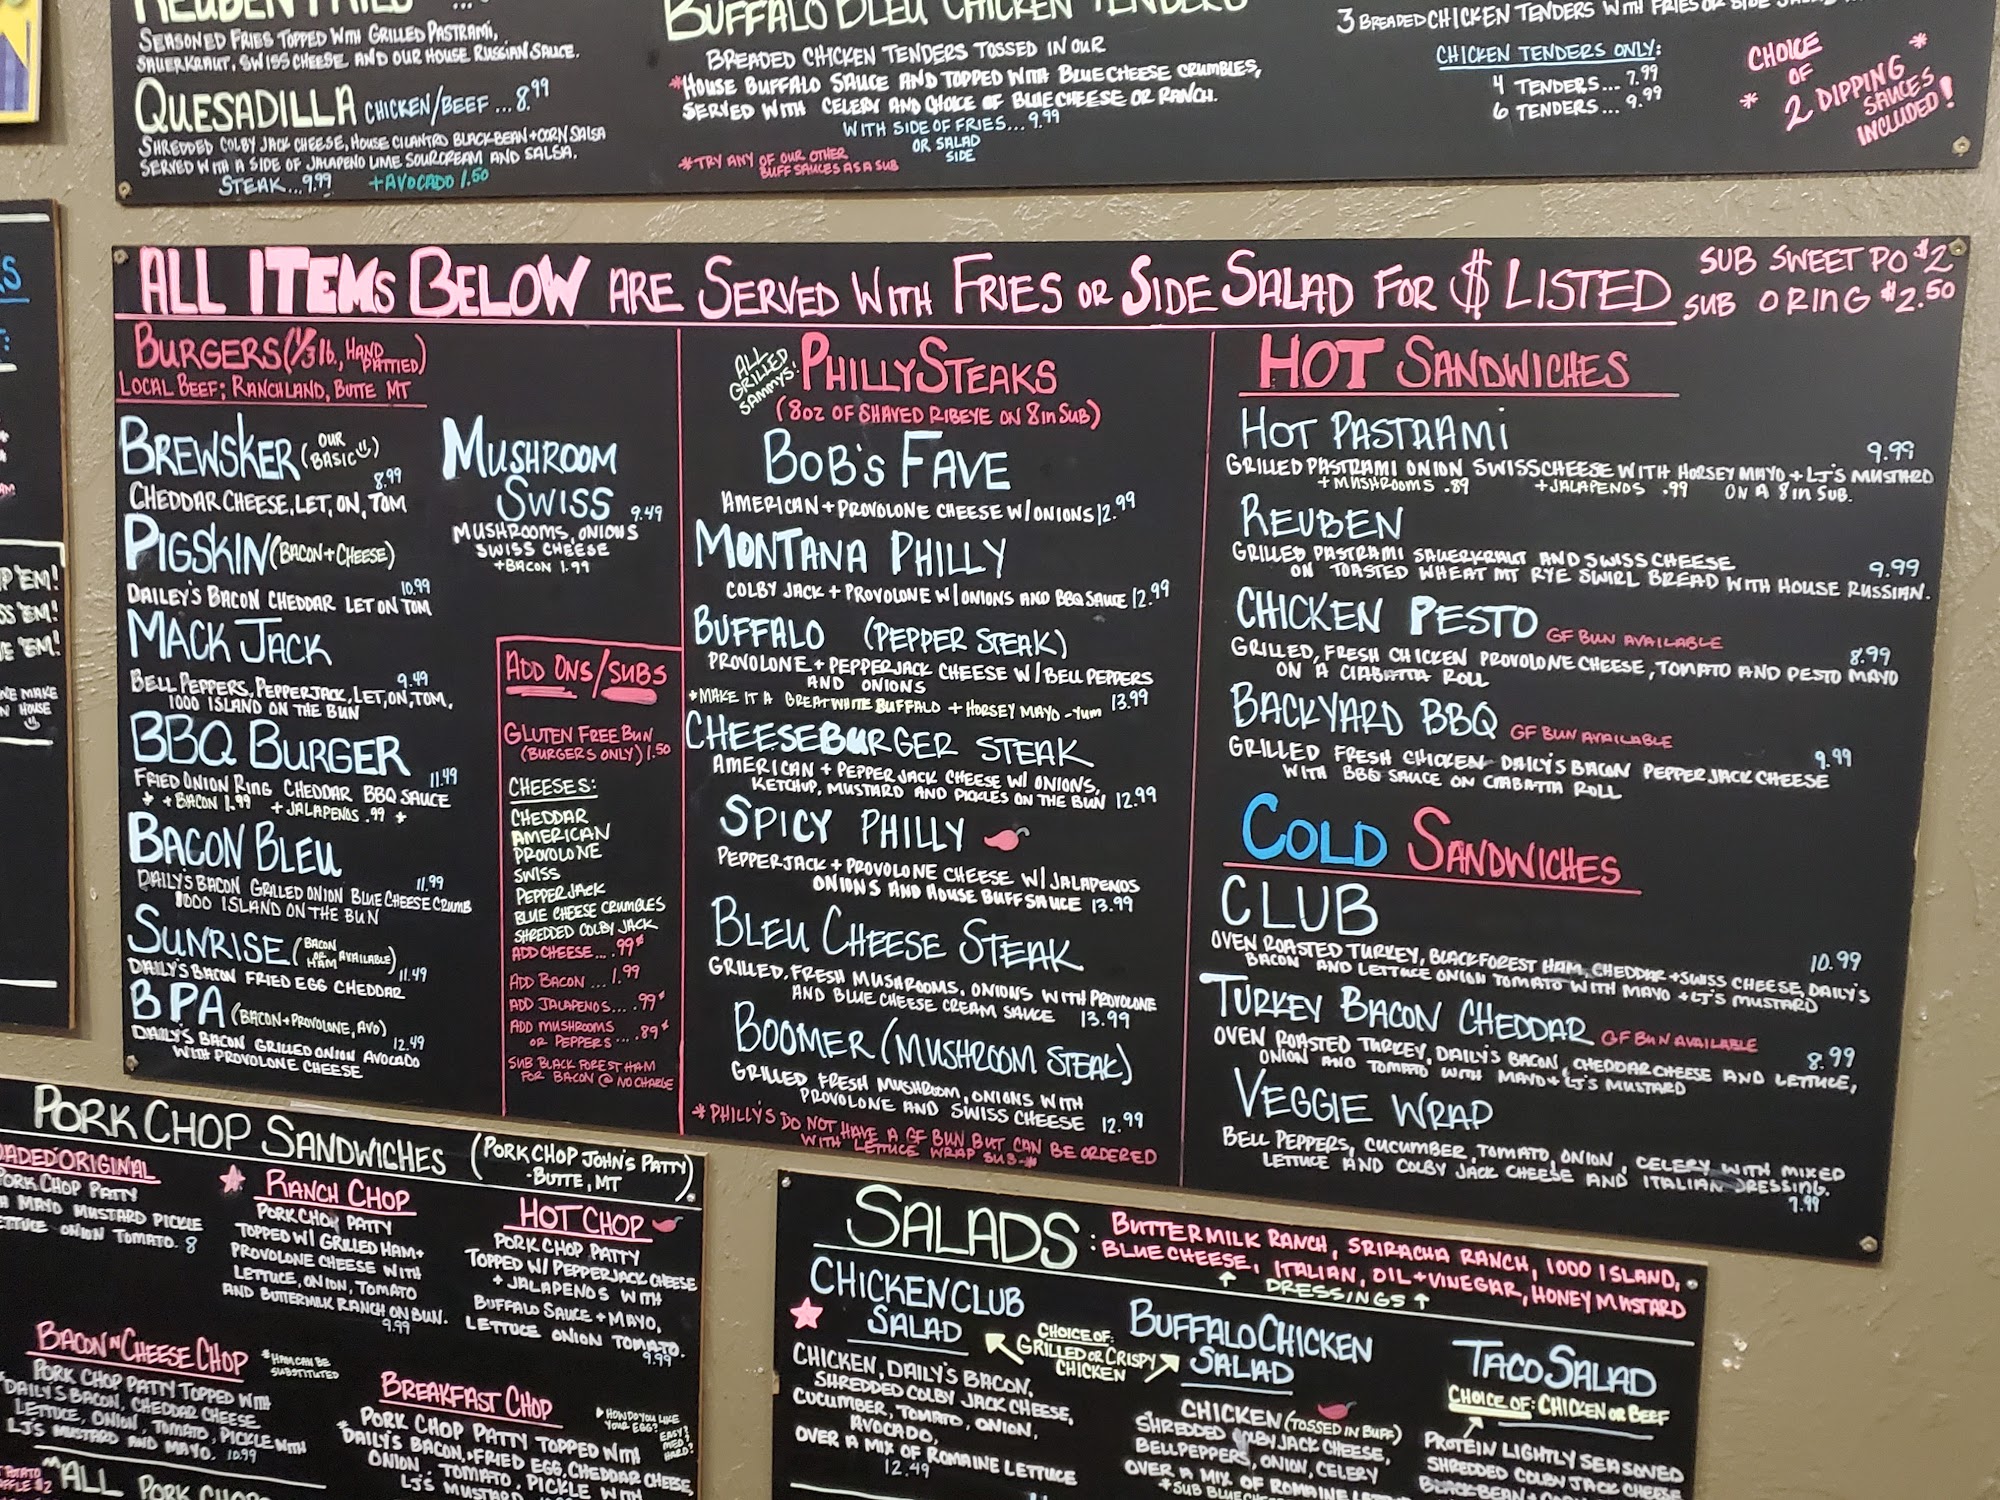 SEASONED FRIES TOPPED WITH GRILLED PASTRAMI,
SAUERKRAUT, SWISS CHEESE AND OUR HOUSE RUSSIAN SAUCE.
QUESADILLA CHICKEN/BEEF ... 8.99
SHREDDED COLBY JACK CHEESE, HOUSE CILANTRO BLACKBEAN + CORN SALSA
SERVED WITH A SIDE OF JALAPENO LIME SOURCREAM AND SALSA.
STEAK... 9.99 +AVOCADO 1.50
BUFFALO BLEU CHICKEN TENDERS
BREADED CHICKEN TENDERS TOSSED IN OUR
*HOUSE BUFFALO SAUCE AND TOPPED WITH BLUECHEESE CRUMBLES,
SERVED WITH CELERY AND CHOICE OF BLUECHEESE OR RANCH.
WITH SIDE OF FRIES... 9.99
OR SALAD
SIDE
*TRY ANY OF OUR OTHER
BUFF SAUCES AS A SUB
3 BREADED CHICKEN TENDERS WITH FRIES OR SIDE
CHICKEN TENDERS ONLY:
4 TENDERS... 7.99
6 TENDERS... 9.99
CHOICE
OF
* 2 DIPPING *
SAUCES
INCLUDED!
ALL ITEMS BELOW ARE SERVED WITH FRIES OR SIDE SALAD FOR $ LISTED
SUB SWEET PO $2
SUB O RING $2.50
BURGERS (1/3 lb., HAND PATTIED)
LOCAL BEEF; RANCHLAND, BUTTE MT
BREWSKER (OUR BASIC)
8.99
CHEDDAR CHEESE, LET, ON, TOM
PIGSKIN (BACON + CHEESE)
10.99
DAILEY'S BACON CHEDDAR LET ON TOM
MACK JACK
9.49
BELL PEPPERS, PEPPERJACK, LET, ON, TOM,
1000 ISLAND ON THE BUN
BBQ BURGER
11.49
FRIED ONION RING CHEDDAR BBQ SAUCE
* +BACON 1.99 +JALAPENOS .99 *
BACON BLEU
11.99
DAILY'S BACON GRILLED ONION BLUE CHEESE CRUMB
1000 ISLAND ON THE BUN
SUNRISE (BACON OR HAM AVAILABLE)
11.49
DAILY'S BACON FRIED EGG CHEDDAR
BPA (BACON + PROVOLONE, AVO)
12.49
DAILY'S BACON GRILLED ONION AVOCADO
WITH PROVOLONE CHEESE
MUSHROOM
SWISS 9.49
MUSHROOMS, ONIONS
SWISS CHEESE
+BACON 1.99
ADD ONS/SUBS
GLUTEN FREE BUN
(BURGERS ONLY) 1.50
CHEESES:
CHEDDAR
AMERICAN
PROVOLONE
SWISS
PEPPERJACK
BLUE CHEESE CRUMBLES
SHREDDED COLBY JACK
ADD CHEESE... .99¢
ADD BACON ... 1.99
ADD JALAPENOS... .99¢
ADD MUSHROOMS
OR PEPPERS ... .89¢
SUB BLACK FOREST HAM
FOR BACON @ NO CHARGE
ALL
GRILLED
SAMMYS!
PHILLY STEAKS
(8oz OF SHAVED RIBEYE ON 8in SUB)
BOB'S FAVE
AMERICAN + PROVOLONE CHEESE W/ONIONS 12.99
MONTANA PHILLY
COLBY JACK + PROVOLONE W/ONIONS AND BBQ SAUCE 12.99
BUFFALO (PEPPER STEAK)
PROVOLONE + PEPPERJACK CHEESE W/ BELL PEPPERS
AND ONIONS
*MAKE IT A GREAT WHITE BUFFALO + HORSEY MAYO - YUM 13.99
CHEESEBURGER STEAK
AMERICAN + PEPPER JACK CHEESE W/ ONIONS,
KETCHUP, MUSTARD AND PICKLES ON THE BUN 12.99
SPICY PHILLY
PEPPERJACK + PROVOLONE CHEESE W/ JALAPENOS
ONIONS AND HOUSE BUFF SAUCE 13.99
BLEU CHEESE STEAK
GRILLED, FRESH MUSHROOMS, ONIONS WITH PROVOLONE
AND BLUE CHEESE CREAM SAUCE 13.99
BOOMER (MUSHROOM STEAK)
GRILLED, FRESH MUSHROOM, ONIONS WITH
PROVOLONE AND SWISS CHEESE 12.99
*PHILLY'S DO NOT HAVE A GF BUN BUT CAN BE ORDERED
WITH LETTUCE WRAP SUB*
HOT SANDWICHES
HOT PASTRAMI
9.99
GRILLED PASTRAMI ONION SWISSCHEESE WITH HORSEY MAYO + LJ'S MUSTARD
+ MUSHROOMS .89 + JALAPENOS .99 ON A 8in SUB.
REUBEN
GRILLED PASTRAMI SAUERKRAUT AND SWISS CHEESE 9.99
ON TOASTED WHEAT MT RYE SWIRL BREAD WITH HOUSE RUSSIAN.
CHICKEN PESTO GF BUN AVAILABLE
8.99
GRILLED, FRESH CHICKEN PROVOLONE CHEESE, TOMATO AND PESTO MAYO
ON A CIABATTA ROLL
BACKYARD BBQ GF BUN AVAILABLE
9.99
GRILLED FRESH CHICKEN DAILY'S BACON PEPPERJACK CHEESE
WITH BBQ SAUCE ON CIABATTA ROLL
COLD SANDWICHES
CLUB
10.99
OVEN ROASTED TURKEY, BLACKFOREST HAM, CHEDDAR + SWISS CHEESE, DAILY'S
BACON AND LETTUCE ONION TOMATO WITH MAYO + LJ'S MUSTARD
TURKEY BACON CHEDDAR GF BUN AVAILABLE
8.99
OVEN ROASTED TURKEY, DAILY'S BACON, CHEDDAR CHEESE AND LETTUCE,
ONION AND TOMATO WITH MAYO + LJ'S MUSTARD
VEGGIE WRAP
BELL PEPPERS, CUCUMBER, TOMATO, ONION, CELERY WITH MIXED
LETTUCE AND COLBY JACK CHEESE AND ITALIAN DRESSING.
7.99
PORK CHOP SANDWICHES (PORK CHOP JOHN'S PATTY)
-BUTTE, MT
ORIGINAL
PORK CHOP PATTY
MAYO MUSTARD PICKLE
LETTUCE ONION TOMATO. 8
RANCH CHOP
PORK CHOP PATTY
TOPPED W/ GRILLED HAM +
PROVOLONE CHEESE WITH
LETTUCE, ONION, TOMATO
AND BUTTERMILK RANCH ON BUN.
9.99
HOT CHOP
PORK CHOP PATTY
TOPPED W/ PEPPERJACK CHEESE
+ JALAPENOS WITH
BUFFALO SAUCE + MAYO,
LETTUCE ONION TOMATO.
9.99
BACON N CHEESE CHOP
*HAM CAN BE
SUBSTITUTED
PORK CHOP PATTY TOPPED WITH
DAILY'S BACON, CHEDDAR CHEESE
LETTUCE, ONION, TOMATO, PICKLE WITH
LJ'S MUSTARD AND MAYO. 10.99
BREAKFAST CHOP
HOW DO YOU LIKE
YOUR EGG?
EASY?
MED?
HARD?
*PORK CHOP PATTY TOPPED WITH
DAILY'S BACON, FRIED EGG, CHEDDAR CHEESE,
ONION, TOMATO, PICKLE WITH
LJ'S MUSTARD
ALL PORK CHOP
SALADS: BUTTERMILK RANCH, SRIRACHA RANCH, 1000 ISLAND,
BLUE CHEESE, ITALIAN, OIL + VINEGAR, HONEY MUSTARD
↑ DRESSINGS ↑
CHICKEN CLUB
SALAD
CHOICE OF:
GRILLED OR CRISPY
CHICKEN
CHICKEN, DAILY'S BACON,
SHREDDED COLBY JACK CHEESE,
CUCUMBER, TOMATO, ONION,
AVOCADO,
OVER A MIX OF ROMAINE LETTUCE
12.49
BUFFALO CHICKEN
SALAD
CHICKEN (TOSSED IN BUFF)
SHREDDED COLBY JACK CHEESE,
BELL PEPPERS, ONION, CELERY
OVER A MIX OF ROMAINE
TACO SALAD
CHOICE OF: CHICKEN OR BEEF
PROTEIN LIGHTLY SEASONED
SHREDDED COLBY JACK CHEESE